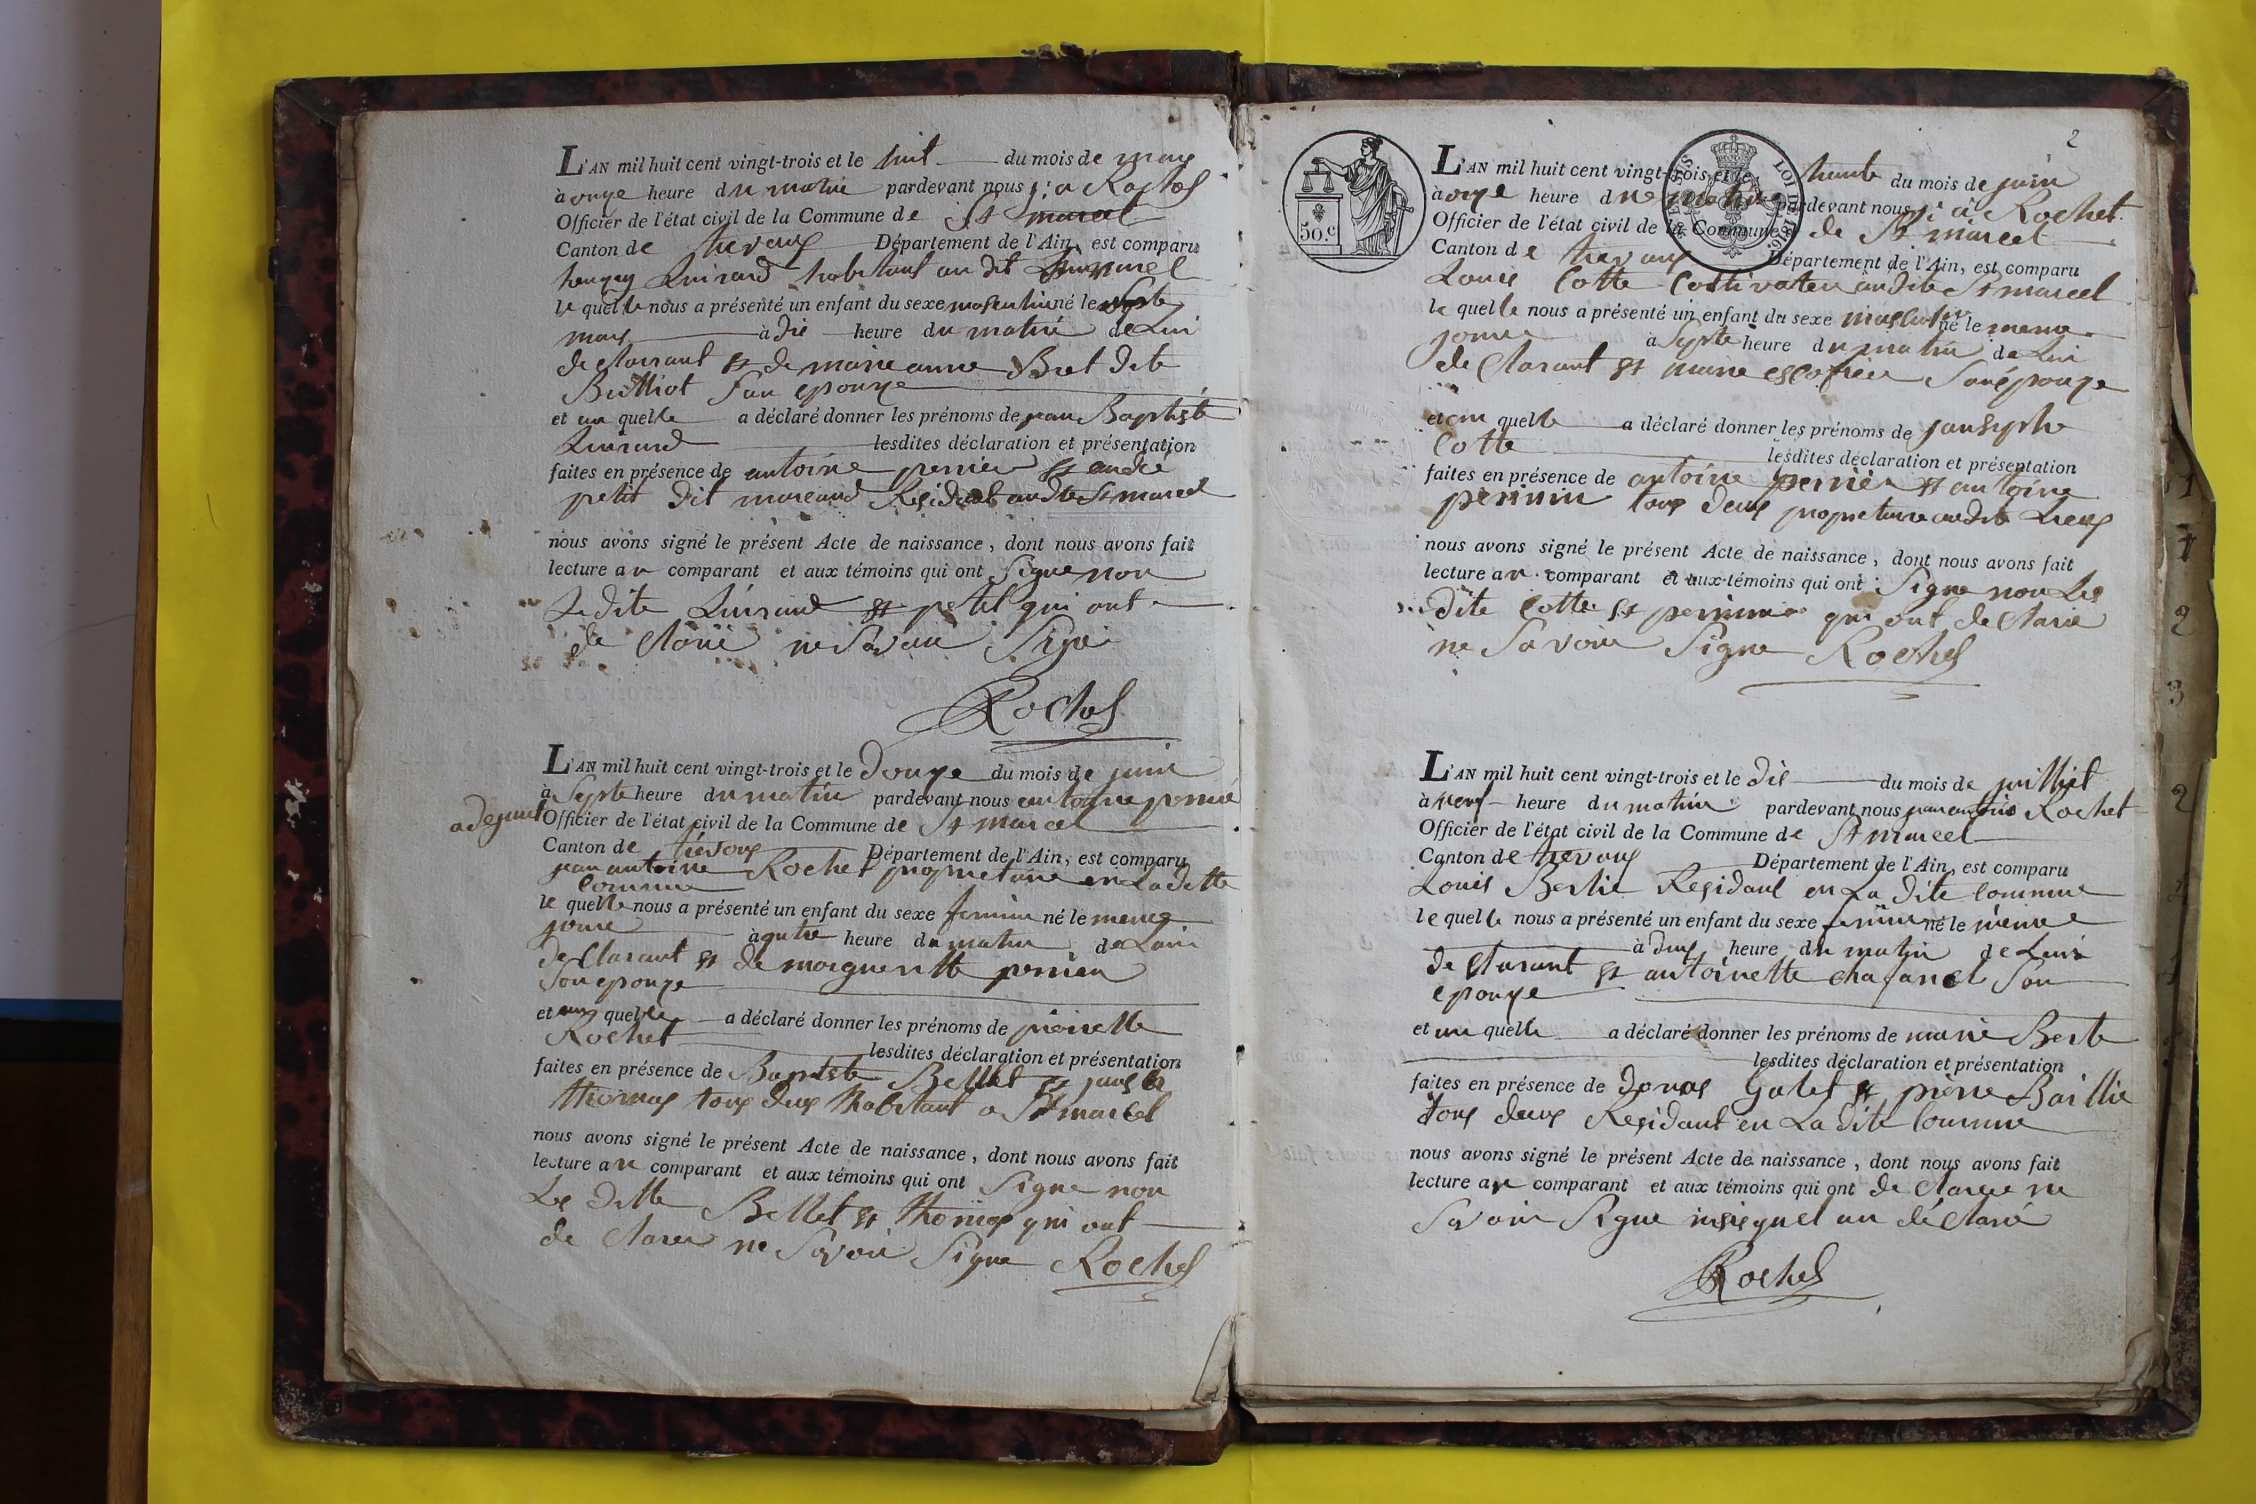 L'AN mil huit cent vingt-trois et le huit du mois de may
à onze heure du matin pardevant nous j: a Rochet
Officier de l'état civil de la Commune de St marcel
Canton de trevoux Département de l'Ain, est comparu
habitant au dit
le quelle nous a présenté un enfant du sexe masculin né le septe
may à dix heure du matin de Lui
de Clarant et de marie anne Bret dite
Bulliot Son epouze
et au quelle a déclaré donner les prénoms de jean Baptiste
lesdites déclaration et présentation
faites en présence de antoine perrier et andré
petit dit Residant au dit St marcel
nous avons signé le présent Acte de naissance, dont nous avons fait
lecture au comparant et aux témoins qui ont Signe non
Le dite et petit qui ont
de Claré ne Savoir Signé
Rochet
L'AN mil huit cent vingt-trois et le douze du mois de juin
à Septe heure du matin pardevant nous antoine perrié
adejoint Officier de l'état civil de la Commune de St marcel
Canton de trévoux Département de l'Ain, est comparu
jean antoine Rochet proprietaire en La ditte
Commune
le quelle nous a présenté un enfant du sexe feminin né le meme
jour à quatre heure du matin de Luii
de Clarant et de margueritte perrier
Son epouze
et au quelle a déclaré donner les prénoms de pierrette
Rochet lesdites déclaration et présentation
faites en présence de Baptiste Bellet et
thomas tous deux habitant a St marcel
nous avons signé le présent Acte de naissance, dont nous avons fait
lecture au comparant et aux témoins qui ont Signe non
Les ditte Bellet et thomas qui ont
de Clarer ne Savoir Signe Rochet
2
50.c
SUS LOI DE 1816.
L'AN mil huit cent vingt-trois et le trente du mois de juin
à onze heure du matin pardevant nous j: a Rochet
Officier de l'état civil de la Commune de St marcel
Canton de trevoux Département de l'Ain, est comparu
Louis Cotte Coltivateur au dite St marcel
le quelle nous a présenté un enfant du sexe masculin né le meme
jour à Septe heure du matin de Lui
de Clarant et marie escofier Son épouze
et au quelle a déclaré donner les prénoms de
Cotte lesdites déclaration et présentation
faites en présence de antoine perrier et antoine
perrinin tous deux proprietaire au dite Lieux
nous avons signé le présent Acte de naissance, dont nous avons fait
lecture au comparant et aux témoins qui ont Signe non Les
dite Cotte et qui ont de Claré
ne Savoir Signe Rochet
L'AN mil huit cent vingt-trois et le dix du mois de juilliet
à neuf heure du matin pardevant nous jean antoine Rochet
Officier de l'état civil de la Commune de St marcel
Canton de trevoux Département de l'Ain, est comparu
Louis Berlie Residant en La dite Commune
le quelle nous a présenté un enfant du sexe feminin né le meme
à deux heure du matin de Luii
de Clarant et antoinette Son
epouze
et au quelle a déclaré donner les prénoms de marie
lesdites déclaration et présentation
faites en présence de Galet et pierre Baillie
tous deux Residant en La dite Commune
nous avons signé le présent Acte de naissance, dont nous avons fait
lecture au comparant et aux témoins qui ont de Clarer ne
Savoir Signe déClaré
Rochet
1
1
2
3
2